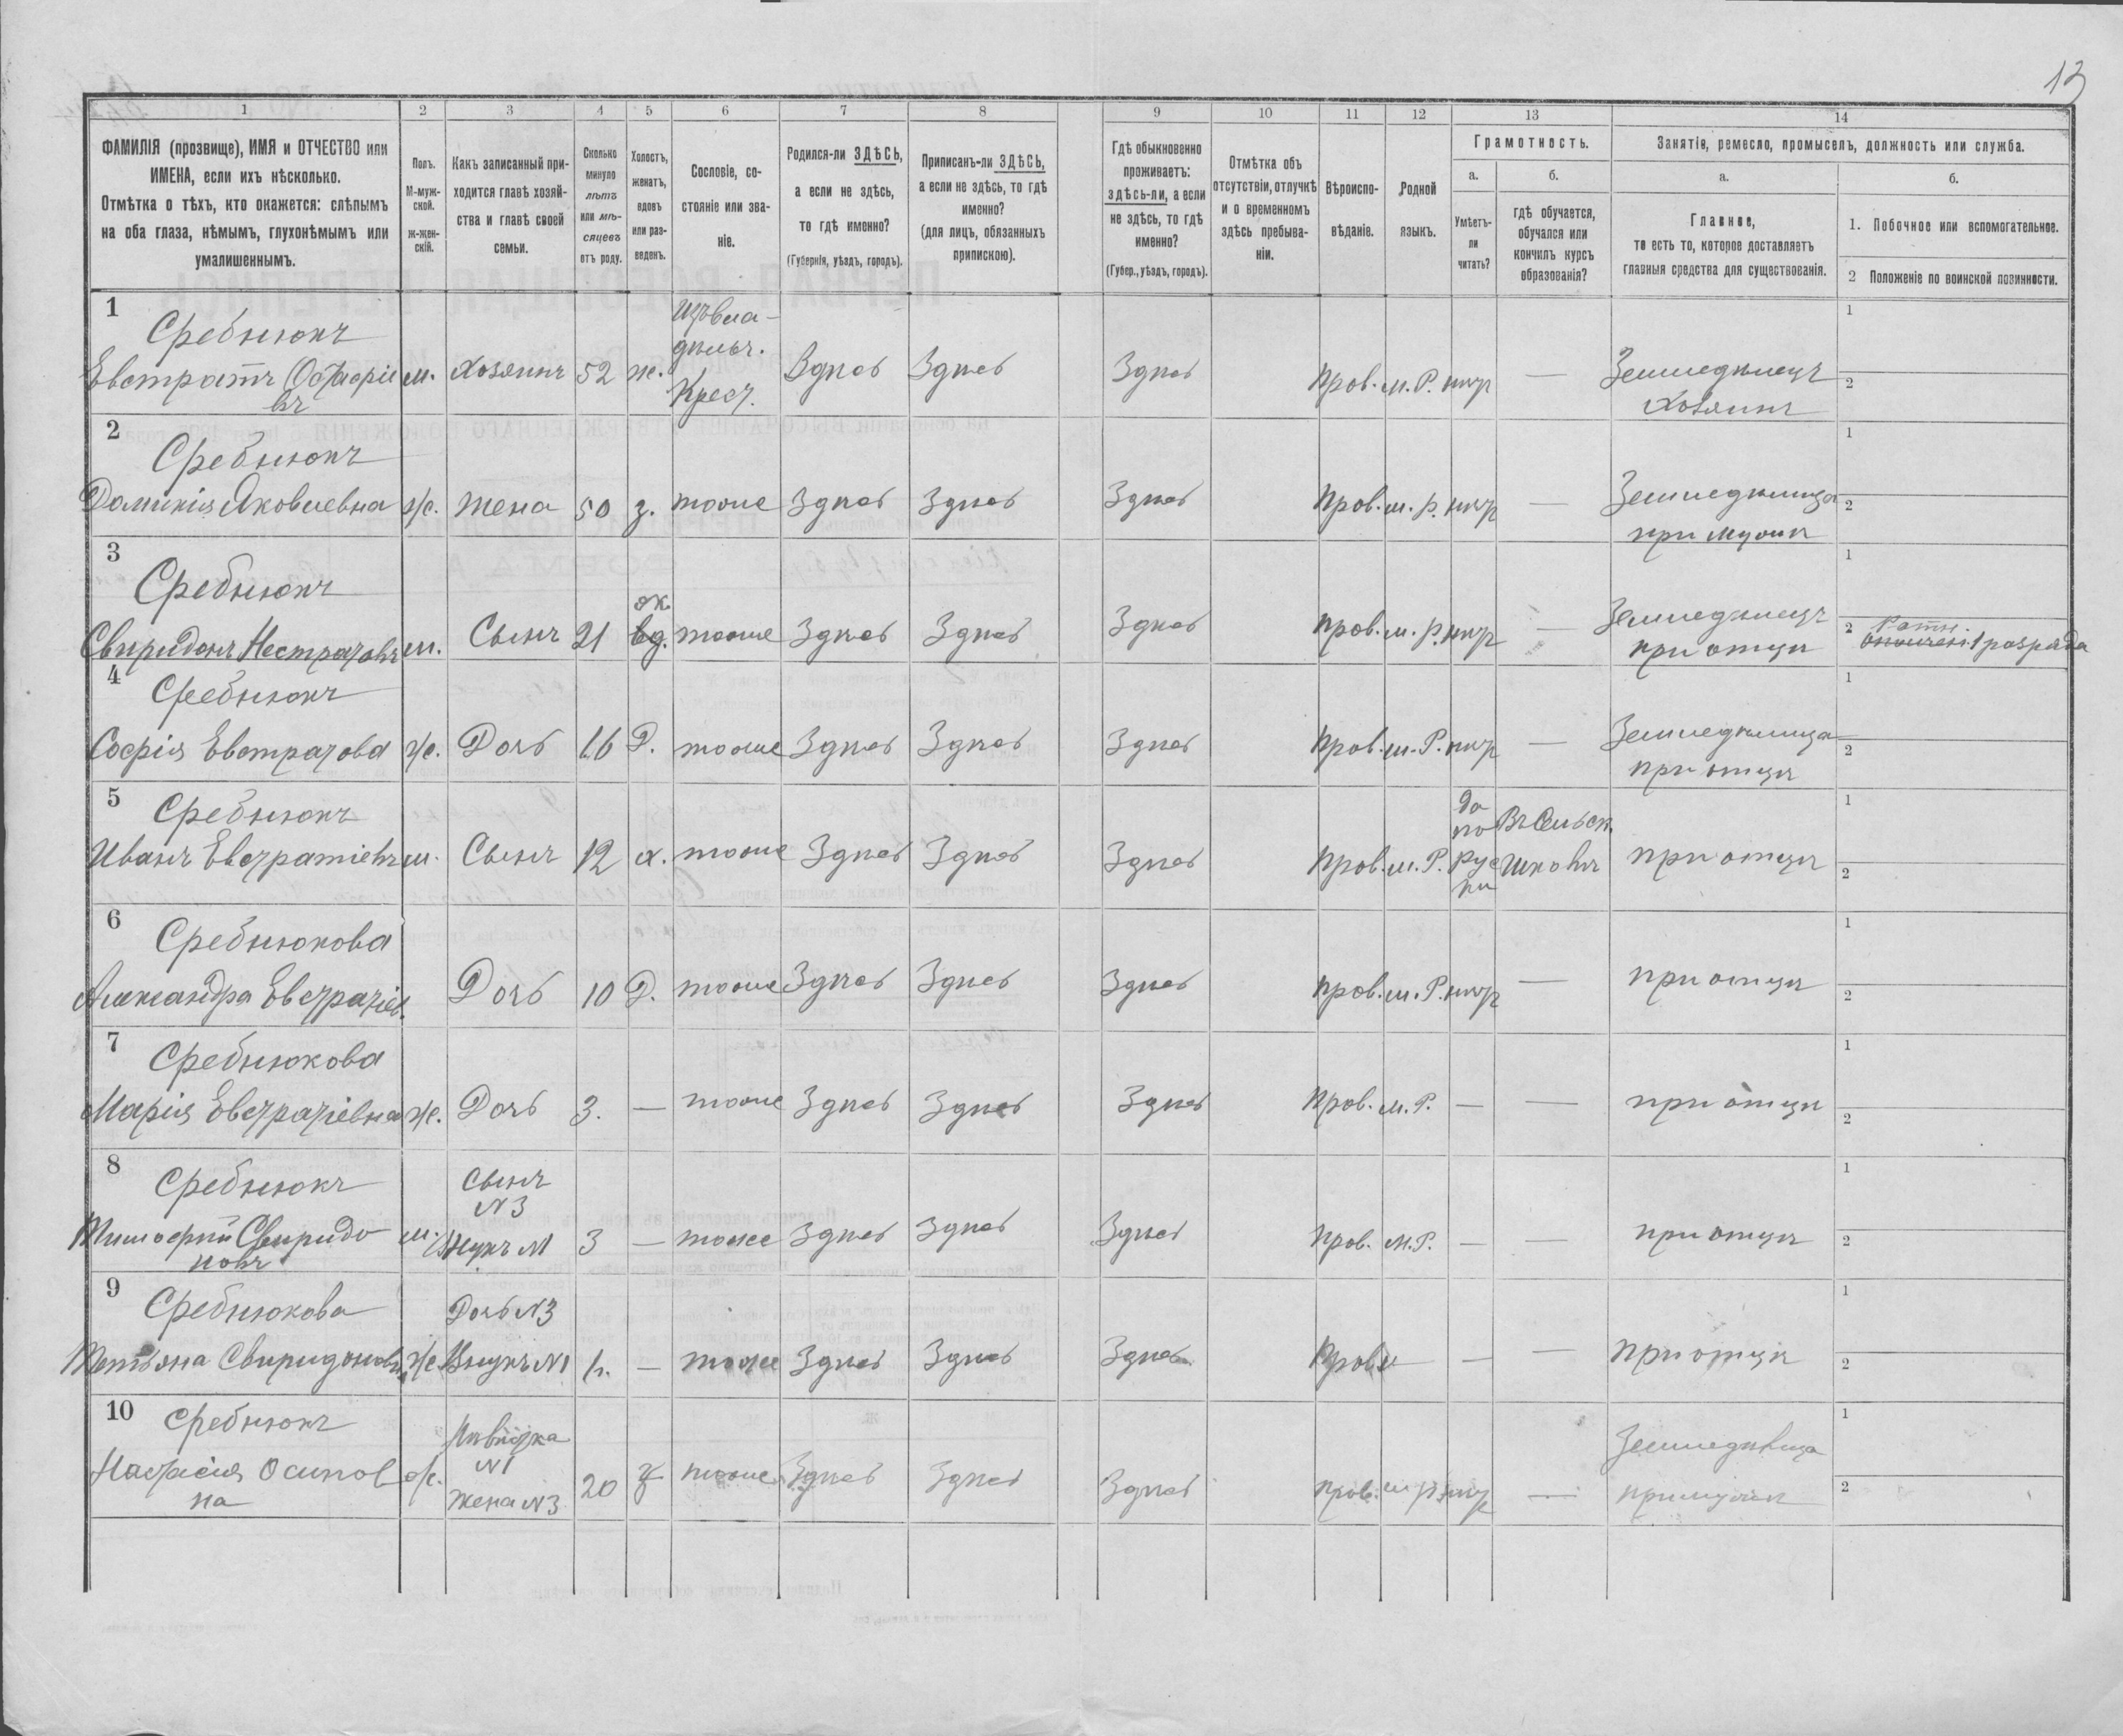 13
1 2 3 4 5 6 7 8 9 10 11 12 13 14
ФАМИЛІЯ (прозвище), ИМЯ и ОТЧЕСТВО или
ИМЕНА, если ихъ нѣсколько.
Отмѣтка о тѣхъ, кто окажется: слѣпымъ
на оба глаза, нѣмымъ, глухонѣмымъ или
умалишеннымъ.
Полъ.
М-муж-
ской.
ж-жен-
скій.
Какъ записанный при-
ходится главѣ хозяй-
ства и главѣ своей
семьи.
Сколько
минуло
лѣтъ
или мѣ-
сяцевъ
отъ роду.
Холостъ,
женатъ,
вдовъ
или раз-
веденъ.
Сословіе, со-
стояніе или зва-
ніе.
Родился-ли ЗДѢСЬ,
а если не здѣсь,
то гдѣ именно?
(Губернія, уѣздъ, городъ).
Приписанъ-ли ЗДѢСЬ,
а если не здѣсь, то гдѣ
именно?
(для лицъ, обязанныхъ
припискою).
Гдѣ обыкновенно
проживаетъ:
здѣсь-ли, а если
не здѣсь, то гдѣ
именно?
(Губер., уѣздъ, городъ).
Отмѣтка объ
отсутствіи, отлучкѣ
и о временномъ
здѣсь пребыва-
ніи.
Вѣроиспо-
вѣданіе.
Родной
языкъ.
Грамотность.
а.
Умѣетъ-
ли
читать?
б.
гдѣ обучается,
обучался или
кончилъ курсъ
образованія?
Занятіе, ремесло, промыселъ, должность или служба.
а.
Главное,
то есть то, которое доставляетъ
главныя средства для существованія.
б.
1. Побочное или вспомогательное.
2 Положеніе по воинской повинности.
1 Сребнюкъ
Евстратъ м. Хозяинъ 52 ж. Крест. Здѣсь Здѣсь Здѣсь Прав. м. Р. нѣтъ — Земледѣлецъ
Хозяинъ
1
2
2 Сребнюкъ
Домникія Яковлевна ж. жена 50 з. тоже Здѣсь Здѣсь Здѣсь Прав. м. р. нѣтъ — Земледѣлица
при мужѣ
1
2
3 Сребнюкъ
ж.
м. Сынъ 21 вд. тоже Здѣсь Здѣсь Здѣсь Прав. м. р. нѣтъ — Земледѣлецъ
при отцѣ
1
2 Ратн. 1 разряда
4 Сребнюкъ
Софія Евстратова ж. Дочь 16 Д. тоже Здѣсь Здѣсь Здѣсь Прав. м. Р. нѣтъ — Земледѣлица
при отцѣ
1
2
5 Сребнюкъ
Иванъ Евстратіевъ м. Сынъ 12 х. тоже Здѣсь Здѣсь Здѣсь Прав. м. Р. да
по
рус
ки
Въ Сельск.
школѣ
при отцѣ
1
2
6 Сребнюкова
Александра Евстратіев. Дочь 10 Д. тоже Здѣсь Здѣсь Здѣсь Прав. м. Р. нѣтъ — при отцѣ
1
2
7 Сребнюкова
Марія Евстратіевна ж. Дочь 3. — тоже Здѣсь Здѣсь Здѣсь Прав. м. Р. — — при отцѣ
1
2
8 Сребнюкъ
Сынъ
N3
Тимофей Свиридо
новъ
м. Внукъ 3 — тоже Здѣсь Здѣсь Здѣсь Прав. м. Р. — — при отцѣ
1
2
9 Сребнюкова
Дочь N3
Татьяна ж. Внукъ N1 — тоже Здѣсь Здѣсь Здѣсь Прав. — — при отцѣ
1
2
10 Сребнюкъ
Невѣстка
N1
Жена N3
Настасія Осипов
на
ж. 20 з тоже Здѣсь Здѣсь Здѣсь прав. м. р. нѣтъ — Земледѣлица
при мужѣ
1
2